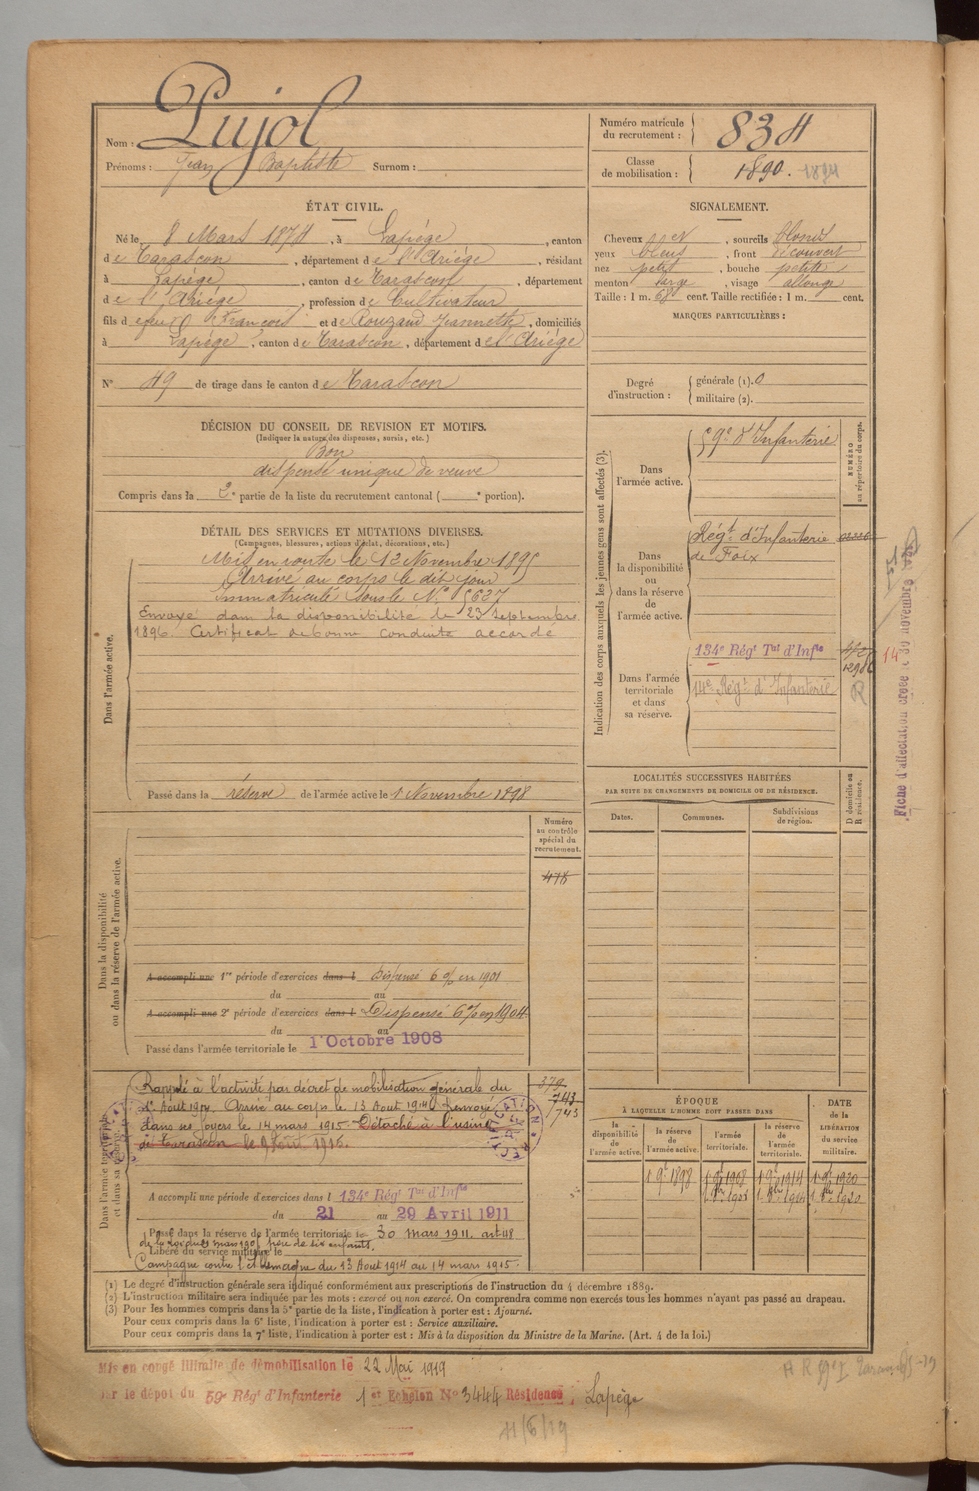 Nom : Pujol
Prénoms : Jean Baptiste Surnom :
Numéro matricule du recrutement : 834
Classe de mobilisation : 1890. 1894
ÉTAT CIVIL.
Né le 8 Mars 1874, à Lapège, canton
de Tarascon, département de l'Ariège, résidant
à Lapège, canton de Tarascon, département
de l'Ariège, profession de Cultivateur
fils de feu François et de Rouzaud Jeannette, domiciliés
à Lapège, canton de Tarascon, département de l'Ariège
N° 49 de tirage dans le canton de Tarascon
SIGNALEMENT.
Cheveux et, sourcils blonds
yeux bleus, front découvert
nez petit, bouche petite
menton large, visage allongé
Taille : 1 m. 68 cent. Taille rectifiée : 1 m. cent.
MARQUES PARTICULIÈRES :
Degré d'instruction : générale (1). 0
militaire (2).
DÉCISION DU CONSEIL DE REVISION ET MOTIFS.
(Indiquer la nature des dispenses, sursis, etc.)
Bon
dispensé unique de veuve
Compris dans la 2e partie de la liste du recrutement cantonal ( e portion).
DÉTAIL DES SERVICES ET MUTATIONS DIVERSES.
(Campagnes, blessures, actions d'éclat, décorations, etc.)
Dans l'armée active.
Mis en route le 12 Novembre 1895
Arrivé au corps le dit jour
Immatriculé sous le N° 5637
Envoyé dans la disponibilité le 23 septembre
1896. Certificat de bonne conduite accordé
Passé dans la réserve de l'armée active le 1 Novembre 1898
Indication des corps auxquels les jeunes gens sont affectés (3).
NUMÉRO au répertoire du corps.
Dans l'armée active.
59e d'Infanterie
Dans la disponibilité ou dans la réserve de l'armée active.
Régt d'Infanterie
de Foix
Dans l'armée territoriale et dans sa réserve.
134e Régt Tal d'Infie
14e Régt d'Infanterie
1298
R
14
Fiche d'affectation créée le 30 novembre
LOCALITÉS SUCCESSIVES HABITÉES
PAR SUITE DE CHANGEMENTS DE DOMICILE OU DE RÉSIDENCE.
Dates.
Communes.
Subdivisions de région.
D domicile ou R résidence.
Dans la disponibilité ou dans la réserve de l'armée active.
Numéro au contrôle spécial du recrutement.
418
A accompli une 1re période d'exercices dans l Dispensé 6 % en 1901
du au
A accompli une 2e période d'exercices dans l Dispensé 6 % en 1904
du au
Passé dans l'armée territoriale le 1er Octobre 1908
Dans l'armée territoriale et dans sa réserve.
Rappelé à l'activité par décret de mobilisation générale du
1er Aout 1914. Arrivé au corps le 13 Aout 1914. Renvoyé
dans ses foyers le 14 mars 1915. Détaché à l'usine
de Tarascon le 9 Aout 1916.
379
743
743
A accompli une période d'exercices dans l 134e Régt Tal d'Infie
du 21 au 29 Avril 1911
Passé dans la réserve de l'armée territoriale le 30 mars 1911. art 48
père de six enfants.
Libéré du service militaire le
Campagne contre l'Allemagne du 13 Aout 1914 au 14 mars 1915.
ÉPOQUE
À LAQUELLE L'HOMME DOIT PASSER DANS
la disponibilité de l'armée active.
la réserve de l'armée active.
l'armée territoriale.
la réserve de l'armée territoriale.
DATE de la LIBÉRATION du service militaire.
1 9e 1898
1 9e 1908
1 9e 1914
1 9e 1920
(1) Le degré d'instruction générale sera indiqué conformément aux prescriptions de l'instruction du 4 décembre 1889.
(2) L'instruction militaire sera indiquée par les mots : exercé ou non exercé. On comprendra comme non exercés tous les hommes n'ayant pas passé au drapeau.
(3) Pour les hommes compris dans la 5e partie de la liste, l'indication à porter est : Ajourné.
Pour ceux compris dans la 6e liste, l'indication à porter est : Service auxiliaire.
Pour ceux compris dans la 7e liste, l'indication à porter est : Mis à la disposition du Ministre de la Marine. (Art. 4 de la loi.)
Mis en congé illimité de démobilisation le 22 Mai 1919
par le dépôt du 59e Régt d'Infanterie 1er Echelon No 3444 Résidence, Lapège
11/6/19